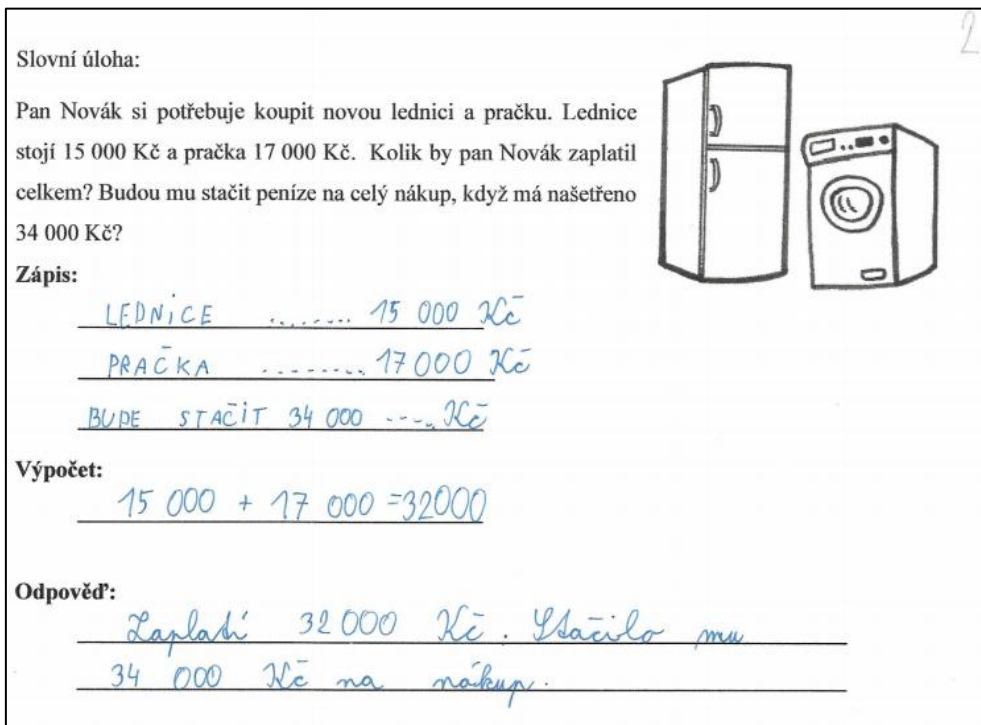 2
Slovní úloha:
Pan Novák si potřebuje koupit novou lednici a pračku. Lednice
stojí 15 000 Kč a pračka 17 000 Kč. Kolik by pan Novák zaplatil
celkem? Budou mu stačit peníze na celý nákup, když má našetřeno
34 000 Kč?
Zápis:
LEDNICE ........ 15 000 Kč
PRAČKA ......... 17 000 Kč
BUDE STAČIT 34 000 ..... Kč
Výpočet:
15 000 + 17 000 = 32000
Odpověď:
Zaplatí 32 000 Kč. Stačilo mu
34 000 Kč na nákup.